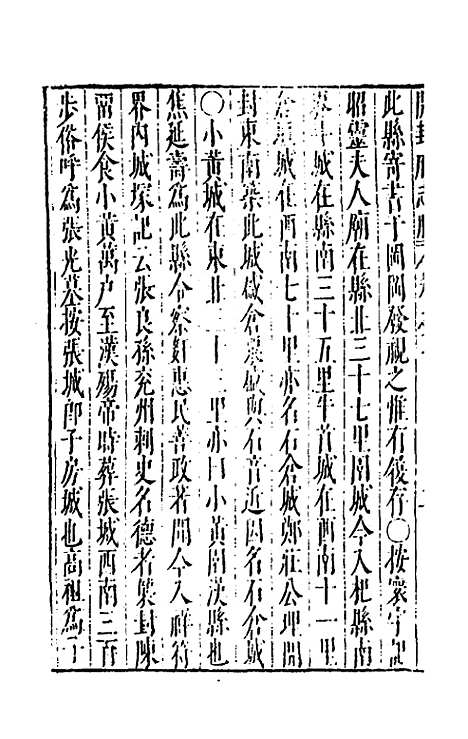 此縣寄書于岡岡發視之惟有錢存〇按寰宇記
昭靈夫人廟在縣北三十七里周城今入杞縣南
十城在縣南三十五里牛首城在西南十一里
倉城在西南七十里亦名石倉城鄭莊公理開
封東南築此城盛倉盛與石音近因名石倉城
〇小黃城在東北二十二里亦曰小黃園漢縣也
焦延壽爲此縣令察姦惠民善政著聞今入祥符
界內城塚記云張良孫兗州刺史名德者襲封陳
畱侯食小黃萬戶至漢殤帝時葬張城西南三百
步俗呼爲張光墓按張城即子房城也高祖爲